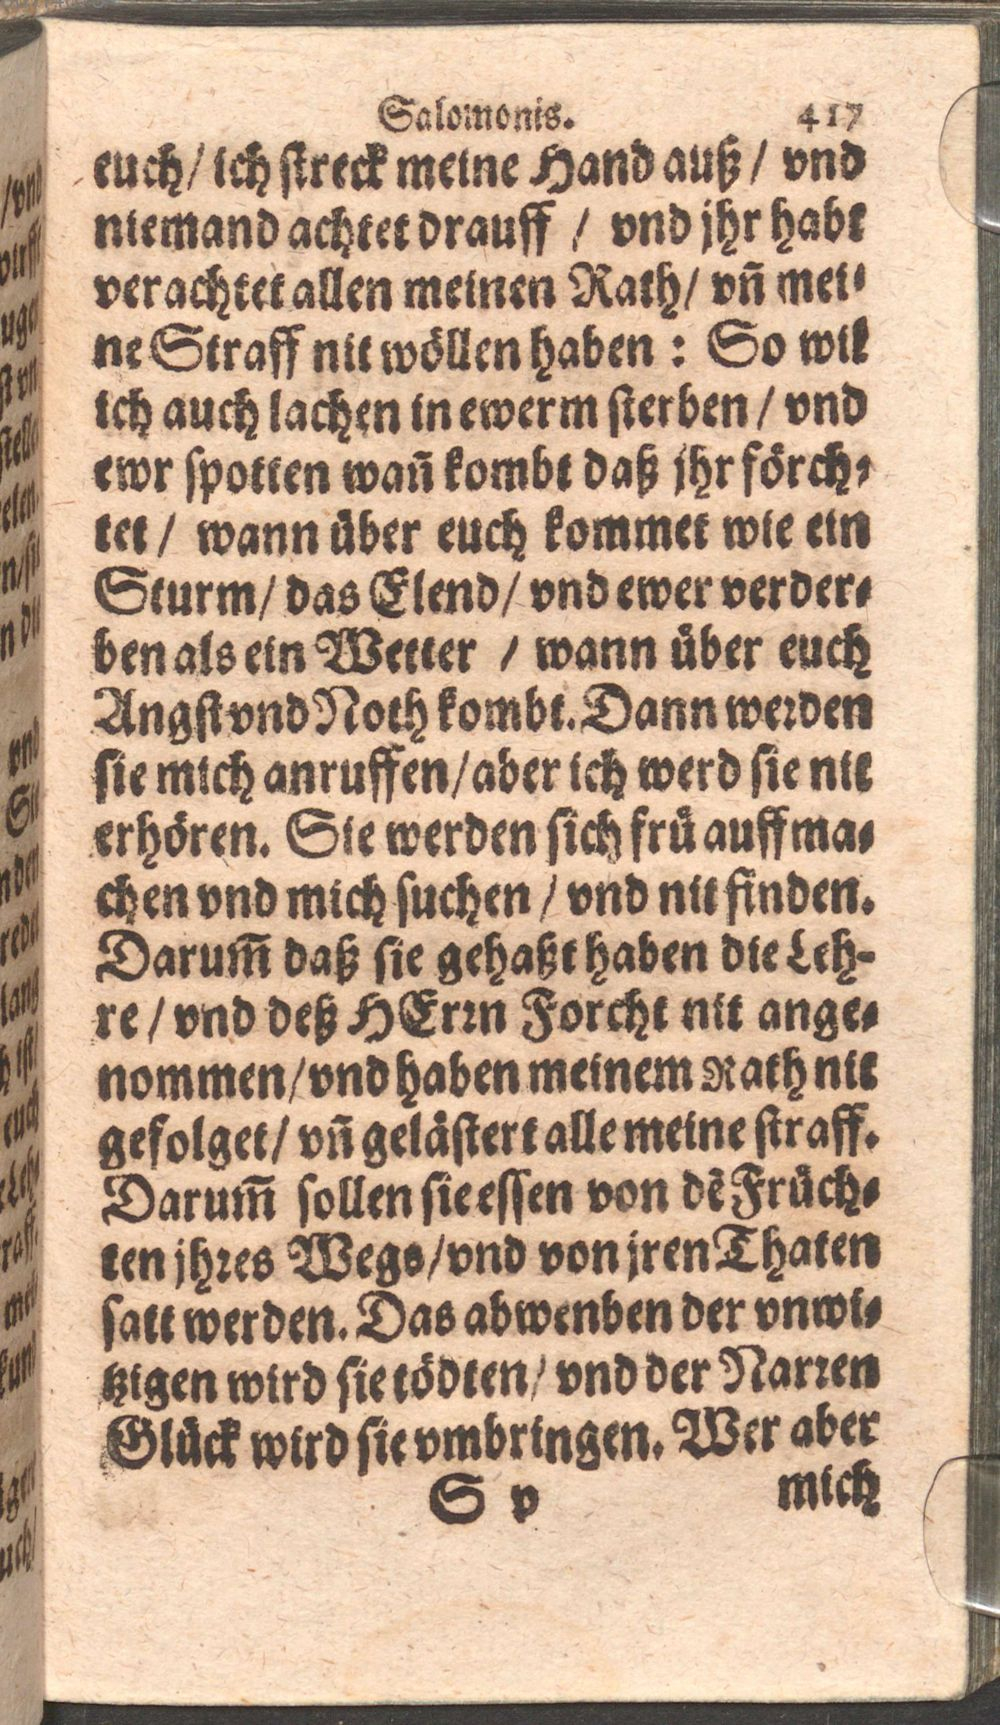 Salomonis. 417
euch/ ich streck meine Hand auß/ vnd
niemand achtet drauff / vnd jhr habt
verachtet allen meinen Rath/ vñ mei-
ne Straff nit wöllen haben : So wil
ich auch lachen in ewerm sterben / vnd
ewr spotten wañ kombt daß jhr förch-
tet / wann über euch kommet wie ein
Sturm/ das Elend/ vnd ewer verder-
ben als ein Wetter / wann über euch
Angst vnd Noth kombt. Dann werden
sie mich anruffen/ aber ich werd sie nit
erhören. Sie werden sich frü auffma-
chen vnd mich suchen / vnd nit finden.
Darum̃ daß sie gehaßt haben die Leh-
re / vnd deß HErrn Forcht nit ange-
nommen/ vnd haben meinem Rath nit
gefolget/ vñ gelästert alle meine straff.
Darum̃ sollen sie essen von dẽ Früch-
ten jhres Wegs/ vnd von jren Thaten
satt werden. Das abwenben der vnwi-
tzigen wird sie tödten/ vnd der Narren
Glück wird sie vmbringen. Wer aber
S v mich